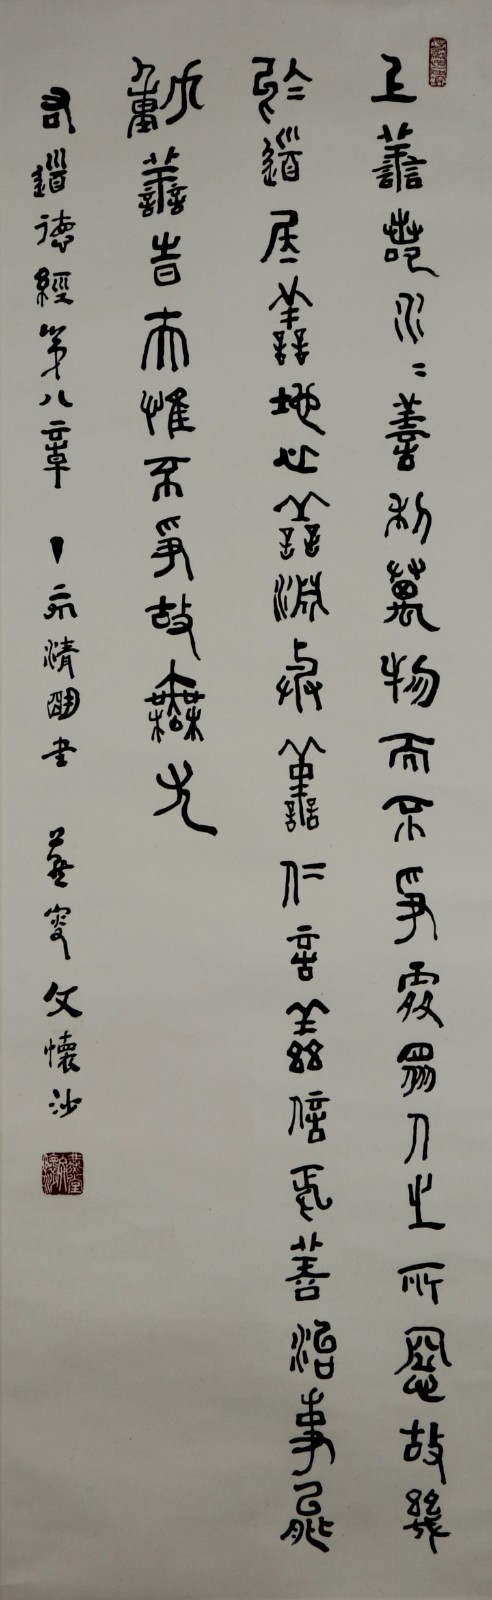 上善若水水善利萬物而不爭處眾人之所惡故幾
於道居善地心善淵與善仁言善信正善治事善能
動善時夫惟不爭故無尤
右道德經第八章 丁亥清明書 燕叟文懷沙